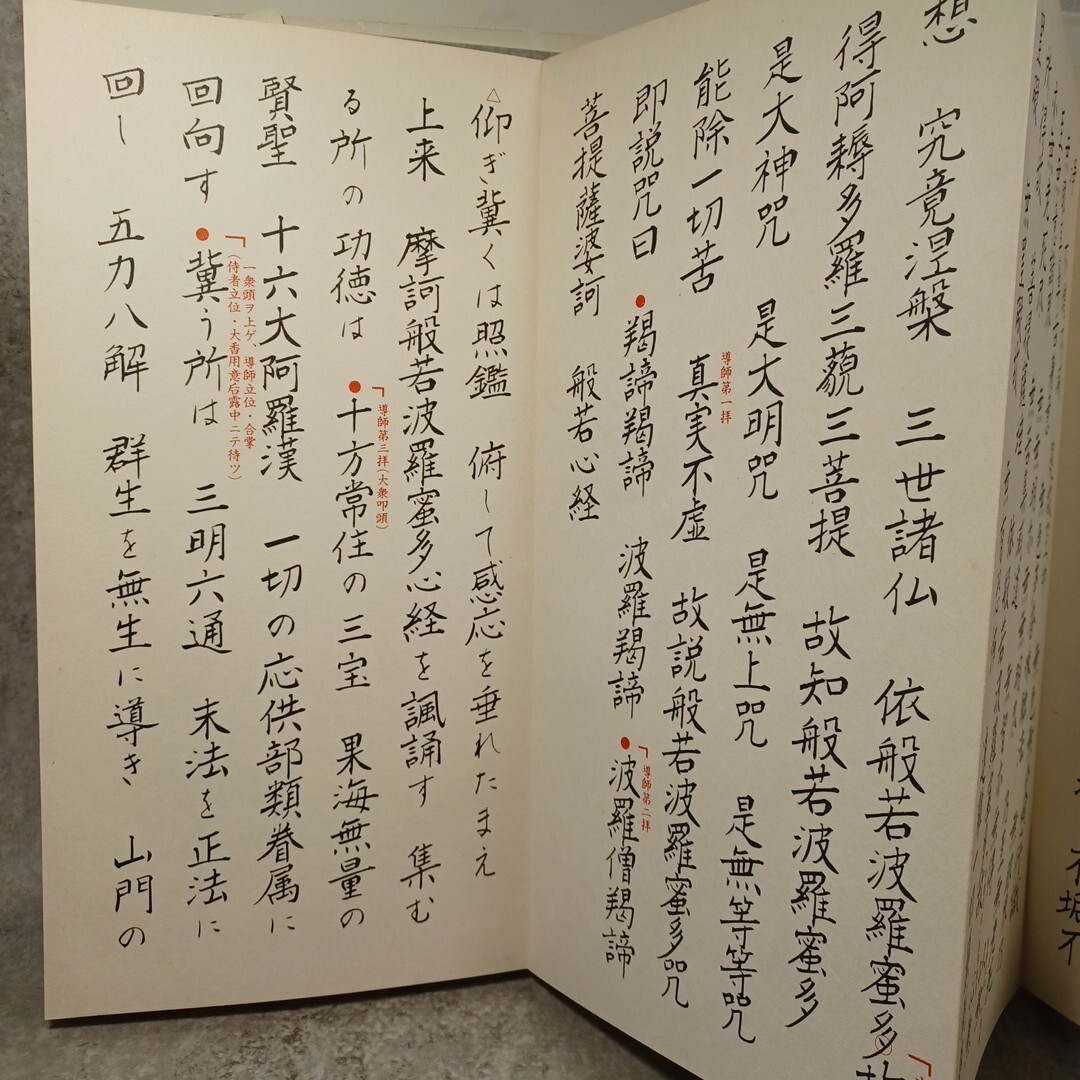 想 究竟涅槃 三世諸仏 依般若波羅蜜多故
得阿耨多羅三藐三菩提 故知般若波羅蜜多
是大神咒 是大明咒 是無上咒 是無等等咒
能除一切苦 真実不虚 故説般若波羅蜜多咒
導師第一拝
即説咒曰 ●羯諦羯諦 波羅羯諦 ●波羅僧羯諦
導師第二拝
菩提薩婆訶 般若心経
△仰ぎ冀くは照鑑 俯して感応を垂れたまえ
上来 摩訶般若波羅蜜多心経を諷誦す 集む
る所の功徳は ●十方常住の三宝 果海無量の
導師第三拝(大衆叩頭)
賢聖 十六大阿羅漢 一切の応供部類眷属に
回向す ●冀う所は 三明六通 末法を正法に
一衆頭ヲ上ゲ、導師立位・合掌
(侍者立位・大香用意后露中ニテ待ツ)
回し 五力八解 群生を無生に導き 山門の